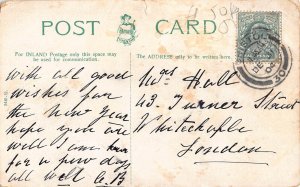 POST CARD
For INLAND Postage only this space may
be used for communication.
The ADDRESS only to be written here.
with all good
wishes for
the New Year
hope you are
well I am here
for a few days
all well
Miss Hall
43. Turner Street
Whitechaple
London